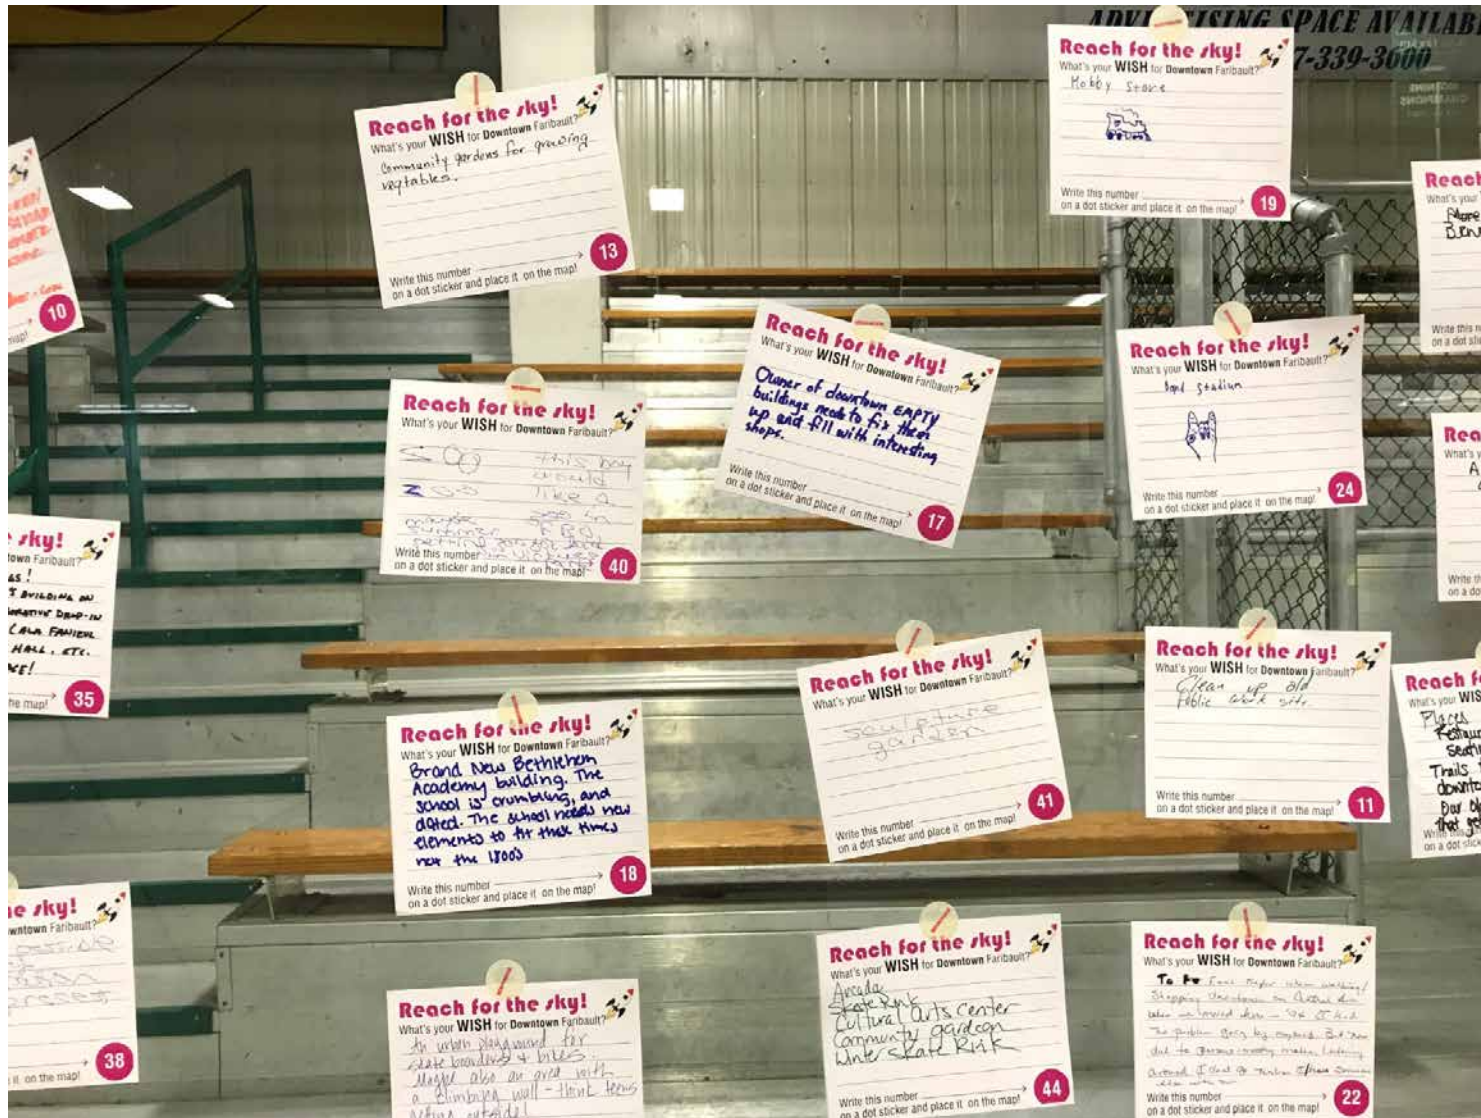 ADVERTISING SPACE AVAILAB
7-339-3600
Reach for the sky!
What's your WISH for Downtown Faribault?
Community gardens for growing
vegtables.
Write this number
on a dot sticker and place it on the map!
13
Reach for the sky!
What's your WISH for Downtown Faribault?
Hobby Store
Write this number
on a dot sticker and place it on the map!
19
10
map!
Reach
What's your
More
Write this n
on a dot stic
Reach for the sky!
What's your WISH for Downtown Faribault?
Owner of downtown EMPTY
buildings needs to fix them
up and fill with interesting
shops.
Write this number
on a dot sticker and place it on the map!
17
Reach for the sky!
What's your WISH for Downtown Faribault?
Band Stadium
Write this number
on a dot sticker and place it on the map!
24
Reach for the sky!
What's your WISH for Downtown Faribault?
this boy
would
like a
zoo in
Write this number
on a dot sticker and place it on the map!
40
Rea
What's y
A
Write th
on a do
sky!
town Faribault?
GS!
'S BUILDING ON
DROP-IN
HALL, ETC.
he map!
35
Reach for the sky!
What's your WISH for Downtown Faribault?
sculpture
garden
Write this number
on a dot sticker and place it on the map!
41
Reach for the sky!
What's your WISH for Downtown Faribault?
Clean up old
Public work site
Write this number
on a dot sticker and place it on the map!
11
Reach fo
What's your WIS
Places
Restaur
Seatin
Trails t
downto
Our
that
on a dot stick
Reach for the sky!
What's your WISH for Downtown Faribault?
Brand New Bethlehem
Academy building. The
school is crumbling, and
dated. The school needs new
elements to fit these times
not the 1800s
Write this number
on a dot sticker and place it on the map!
18
e sky!
wntown Faribault?
it on the map!
38
Reach for the sky!
What's your WISH for Downtown Faribault?
An urban playground for
skate boarders & bikes.
Maybe also an area with
a climbing wall - think teens
getting outside!
Reach for the sky!
What's your WISH for Downtown Faribault?
Arcade
Skate Rink
Cultural Arts Center
Community gardeon
Winter Skate Rink
Write this number
on a dot sticker and place it on the map!
44
Reach for the sky!
What's your WISH for Downtown Faribault?
To Feel Safer when walking/
Shopping downtown on Central Ave
when we moved here
The
due to
around I
Write this number
on a dot sticker and place it on the map!
22